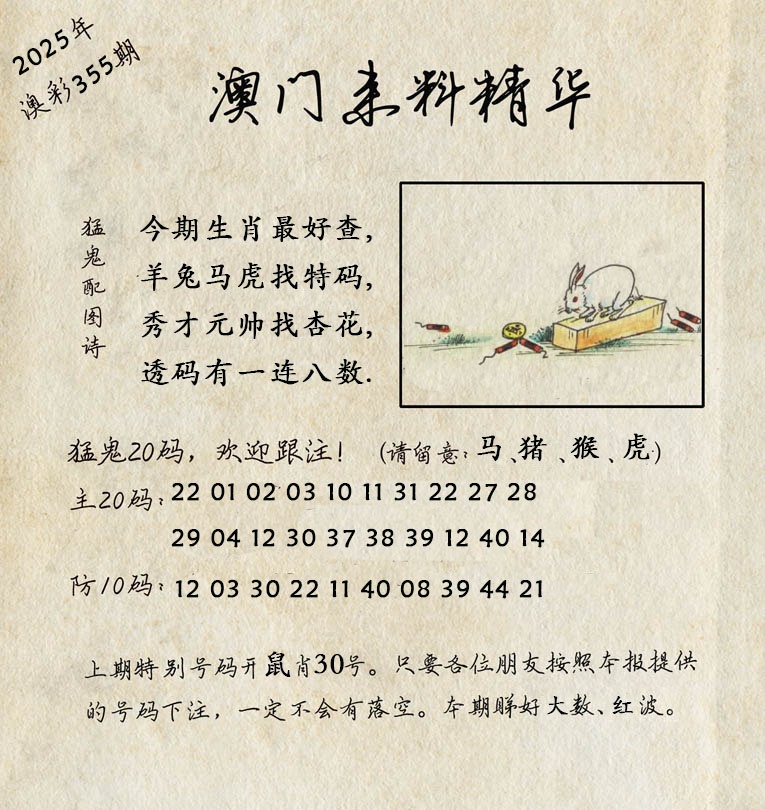 2025年
澳彩355期
澳门来料精华
猛鬼配图诗
今期生肖最好查,
羊兔马虎找特码,
秀才元帅找杏花,
透码有一连八数.
猛鬼20码，欢迎跟注！（请留意：马、猪、猴、虎）
主20码：22 01 02 03 10 11 31 22 27 28
29 04 12 30 37 38 39 12 40 14
防10码：12 03 30 22 11 40 08 39 44 21
上期特别号码开鼠肖30号。只要各位朋友按照本报提供
的号码下注，一定不会有落空。本期睇好大数、红波。